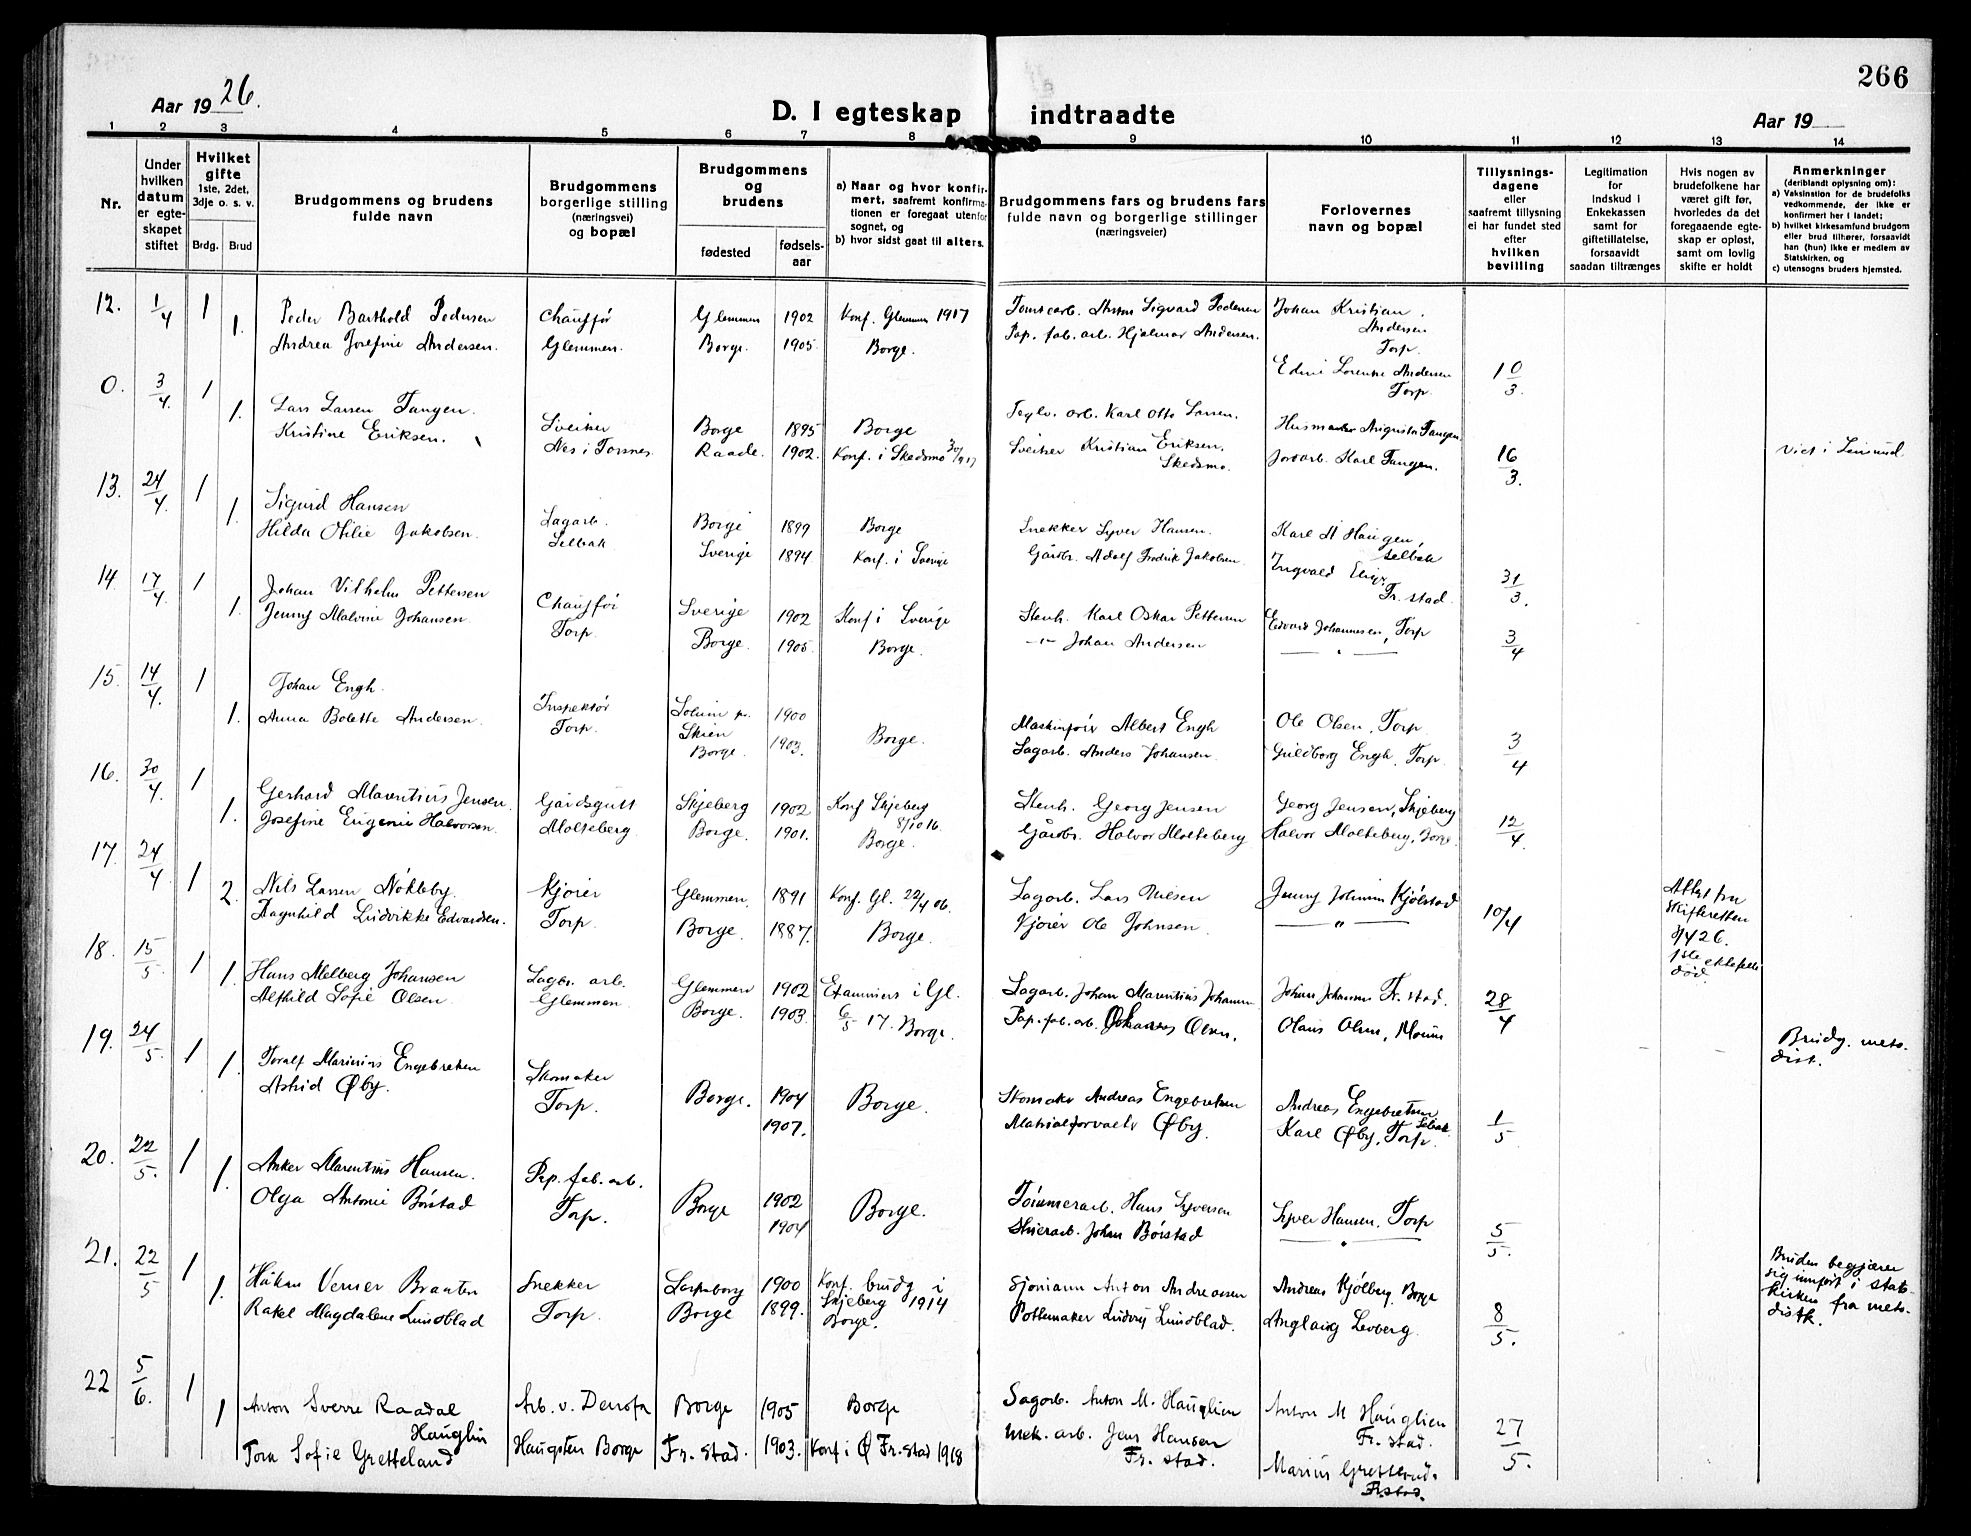 266
Aar 1926.
D. I egteskap indtraadte
Aar 19
1 2 3 4 5 6 7 8 9 10 11 12 13 14
Nr.
Under hvilken datum er egteskapet stiftet
Hvilket gifte
1ste, 2det, 3dje o. s. v.
Brdg. Brud
Brudgommens og brudens fulde navn
Brudgommens borgerlige stilling (næringsvei) og bopæl
Brudgommens og brudens
fødested
fødselsaar
a) Naar og hvor konfirmert, saafremt konfirmationen er foregaat utenfor sognet, og
b) hvor sidst gaat til alters.
Brudgommens fars og brudens fars fulde navn og borgerlige stillinger (næringsveier)
Forlovernes navn og bopæl
Tillysningsdagene eller saafremt tillysning ei har fundet sted efter hvilken bevilling
Legitimation for indskud i Enkekassen samt for giftetillatelse, forsaavidt saadan tiltrænges
Hvis nogen av brudefolkene har været gift før, hvorledes da det foregaaende egteskap er opløst, samt om lovlig skifte er holdt
Anmerkninger
(deriblandt oplysning om):
a) Vaksination for de brudefolks vedkommende, der ikke er konfirmert her i landet;
b) hvilket kirkesamfund brudgom eller brud tilhører, forsaavidt han (hun) ikke er medlem av Statskirken, og
c) utensogns bruders hjemsted.
12. 1/4 1 Peder Barthold Pedersen Chauffør Glemmen 1902 Konf. Glemmen 1917 Sigvard Pedersen Johan Kristian Andersen Torp.
1. Andrea Josefine Andersen. Glemmen. Borge. 1905. Borge. Pap. fab. arb. Hjalmar Andersen. Andersen Torp. 10/3
0. 3/4. 1 Lars Larsen Tangen. Sveiser Borge 1895 Borge Teglv. arb. Karl Otto Larsen. Augusta Tangen.
1. Kristine Eriksen. Nes i Torsnes. Raade. 1902. Konf. i Skedsmo Sveiser Kristian Eriksen. Skedsmo. Karl Tangen. 16/3. Viet i
13. 24/4. 1 Sigurd Hansen Sagarb. Borge 1899 Borge Snekker Syver Hansen. Karl M Haugen, Selbak
1. Hilda Otilie Jakobsen. Selbak Sverige 1894 Konf. i Sverige Gårdbr. Adolf Fredrik Jakobsen Ingvald Fr. stad 31/3.
14. 17/4. 1 Johan Vilhelm Pettersen Chauffør Sverige 1902 Konf i Sverige Stenh. Karl Oskar Pettersen Edvard Johannesen, Torp
1. Jenny Malvine Johansen. Torp. Borge. 1905. Borge. -"- Johan Andersen — " — 3/4
15. 14/4. 1 Johan Engh. Inspektør Solum pr. Skien 1900 Maskinfør Albert Engh Ole Olsen, Torp
1. Anna Bolette Andersen. Torp. Borge. 1903. Borge. Sagarb. Anders Johansen. Guldborg Engh, Torp. 3/4
16. 30/4. 1 Gerhard Marentius Jensen. Gårdsgutt Skjeberg 1902 Konf Skjeberg 8/10 16. Stenh. Georg Jensen Georg Jensen, Skjeberg
1. Josefine Eugenie Halvorsen. Molteberg. Borge. 1901. Borge. Gårdbr. Halvor Molteberg Halvor Molteberg, Borge. 12/4.
17. 24/4 1 Nils Larsen Nökleby. Kjører Glemmen. 1891 Konf. Gl. 22/4 06. Sagarb. Lars Nilsen Jenny Kjølstad
2. Ragnhild Ludvikke Edvardsen. Torp. Borge. 1887. Borge. Kjører Ole Johnsen. — " — 10/4 Attest fra Skifteretten 26. 1ste ektefelle død.
18. 15/5. 1 Hans Melberg Johansen Lager arb. Glemmen 1902 i Gl. Sagarb. Johan Marentius Johansen Johan Johansen Fr. stad.
1. Alfhild Sofie Olsen. Glemmen. Borge. 1903. 6/5 17. Borge. Pap. fab. arb. Johannes Olsen. Olaus Olsen, Moum 28/4
19. 24/5. 1 Toralf Marinius Engebretsen Skomaker Borge. 1904 Borge. Skomaker Andreas Engebretsen Andreas Engebretsen Selbak
1. Astrid Øby. Torp. 1907. Øby. Karl Øby, Torp. 1/5 Brudg. metodist.
20. 22/5. 1 Anker Marentius Hansen. Pap. fab. arb. Borge 1902 Borge. Tømmerarb. Hans Syversen Syver Hansen, Torp
1. Olga Antonie Børstad Torp. 1904 Johan Børstad — " — 5/5.
21. 22/5 1 Håkan Verner Braaten Snekker Sarpsborg 1900 Konf. brudg i Skjeberg 1914 Sjømann Anton Andreassen Andreas Kjølberg, Borge
1. Rakel Magdalene Lundblad Torp. Borge 1899. Borge. Pottemaker Ludvig Lundblad. Levberg. 8/5. Bruden begjærer sig innført i statskirken fra metodistk.
22 5/6. 1 Anton Sverre Raadal Hauglin Arb. v. Denofa Borge 1905 Borge Sagarb. Anton M. Hauglien Anton M Hauglien Fr. stad.
1 Tora Sofie Gretteland Haugsten Borge Fr. stad. 1903. Konf i Ø Fr. stad 1918 Mek. arb. Jens Hansen Fr. stad. Marius Fr. stad. 27/5.